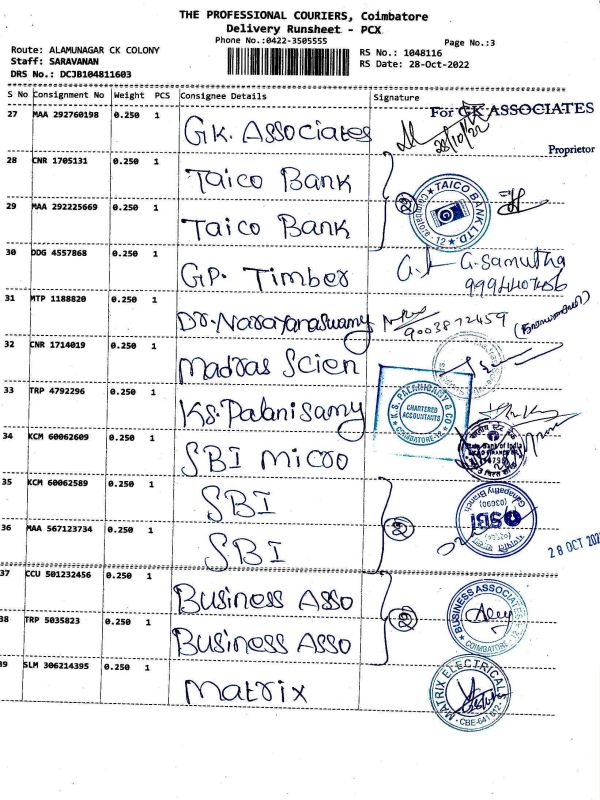 THE PROFESSIONAL COURIERS, Coimbatore
Delivery Runsheet - PCX
Phone No.:0422-3505555
Page No.:3
Route: ALAMUNAGAR CK COLONY
Staff: SARAVANAN
DRS No.: DCJB104811603
RS No.: 1048116
RS Date: 28-Oct-2022
S No Consignment No Weight PCS Consignee Details Signature
27 MAA 292760198 0.250 1 GK. Associates 28/10/22 For GK ASSOCIATES
Proprietor
28 CNR 1705131 0.250 1 Taico Bank
29 MAA 292225669 0.250 1 Taico Bank TAICO BANK LTD. Coimbatore - 12
30 DDG 4557868 0.250 1 GP. Timber G. Samutha
31 MTP 1188820 0.250 1 Dr. Narayanaswamy 9003872459
32 CNR 1714019 0.250 1 Madras Scien
33 TRP 4792296 0.250 1 KS. Palanisamy K.S. PALANISAMY & CO CHARTERED ACCOUNTANTS COIMBATORE-12
34 KCM 60062609 0.250 1 SBI Micro State Bank of India
35 KCM 60062589 0.250 1 SBI SBI Ganapathy Branch
36 MAA 567123734 0.250 1 SBI 28 OCT 202
37 CCU 501232456 0.250 1 Business Asso
38 TRP 5035823 0.250 1 Business Asso BUSINESS ASSOCIATES COIMBATORE - 12
39 SLM 306214395 0.250 1 Matrix MATRIX ELECTRICALS CBE-641 012